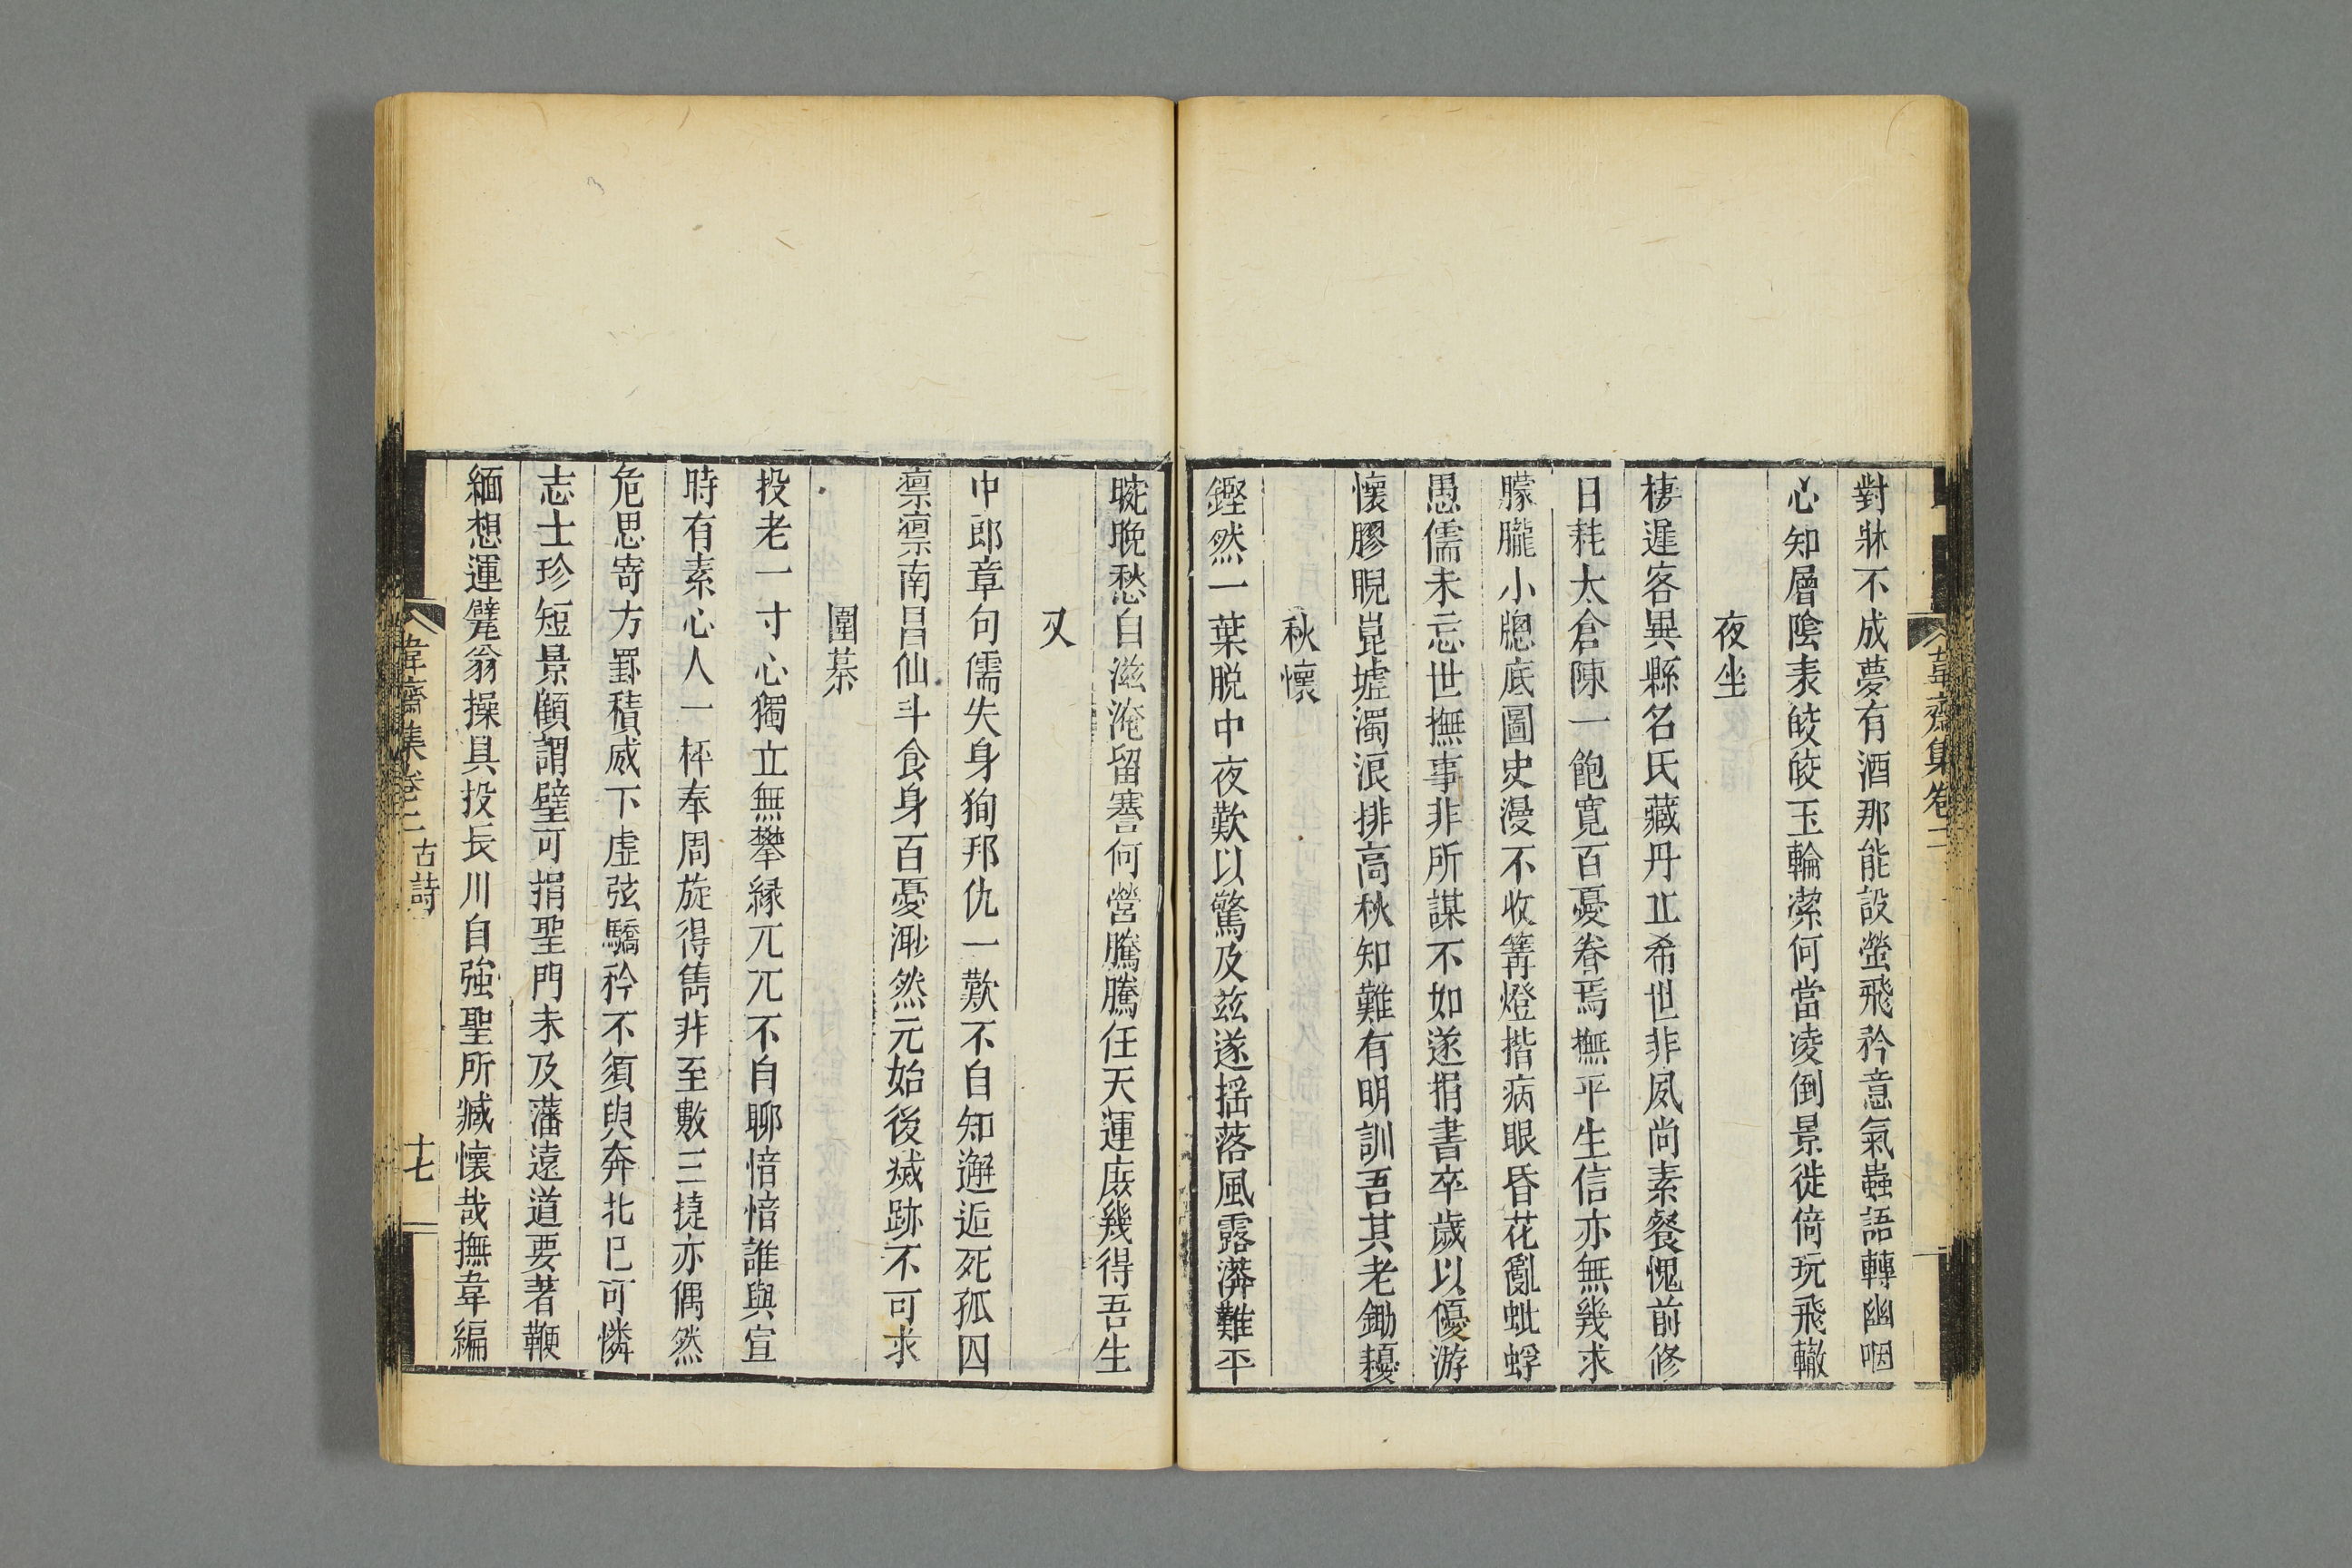 韋齋集卷二
對牀不成夢有酒那能設螢飛矜意氣蟲語轉幽咽
心知層陰表皎皎玉輪潔何當凌倒景徙倚玩飛轍
夜坐
棲遲客異縣名氏藏丹丘希世非夙尚素餐愧前修
日耗太倉陳一飽寬百憂眷焉撫平生信亦無幾求
朦朧小牕底圖史漫不收篝燈揩病眼昏花亂蚍蜉
愚儒未忘世撫事非所謀不如遂捐書卒歲以優游
懷膠睨崑墟濁浪排高秋知難有明訓吾其老鋤耰
秋懷
鏗然一葉脫中夜歎以驚及茲遂揺落風露漭難平
晼晚愁自滋淹留謇何營騰騰任天運庶幾得吾生
又
中郎章句儒失身狥邦仇一歎不自知邂逅死孤囚
凛凛南昌仙斗食身百憂渺然元始後滅跡不可求
圍棊
投老一寸心獨立無攀縁兀兀不自聊愔愔誰與宣
時有素心人一枰奉周旋得雋非至數三捷亦偶然
危思寄方罫積威下虛弦驕矜不須臾奔北已可憐
志士珍短景顧謂璧可捐聖門未及藩遠道要著鞭
緬想運甓翁操具投長川自強聖所臧懷哉撫韋編
韋齋集卷二 古詩 十七